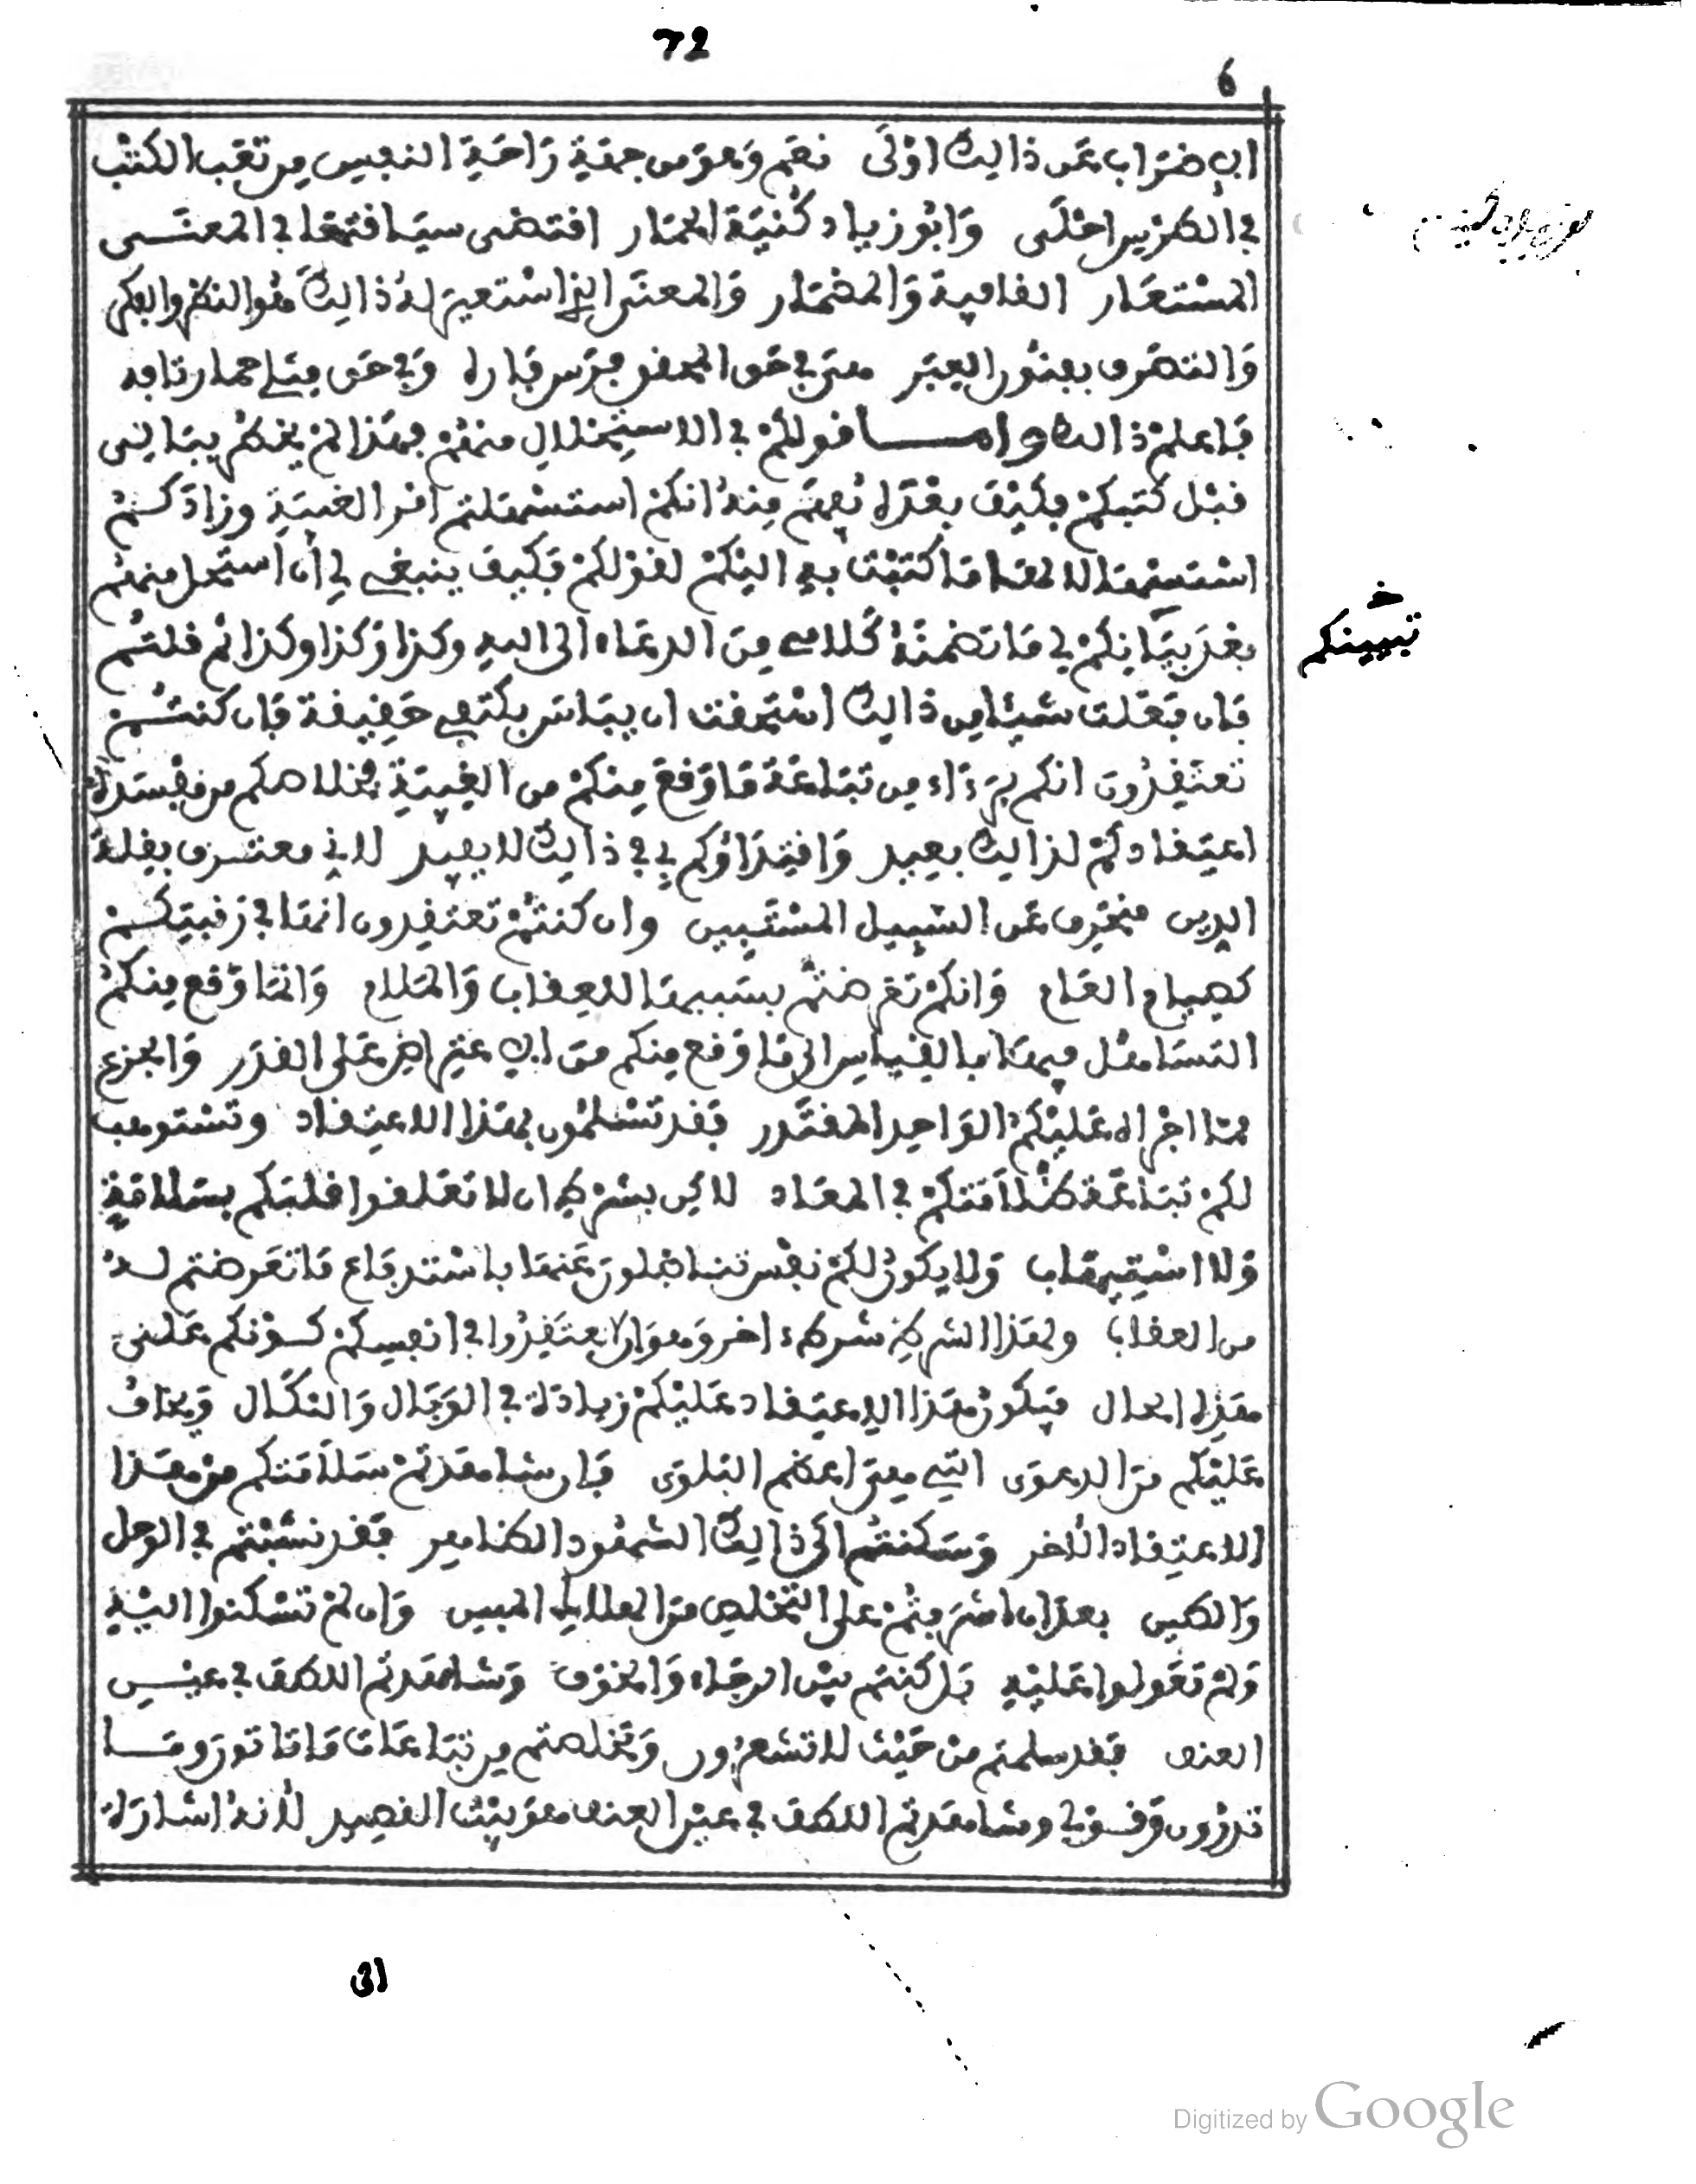 72
6
الاضراب عن ذالك اولى نعم وهو من جهة راحة النفس من تعب الكتب
في الطرس احلى وابو زياد كنية الحمار اقتضى سياقتها في المعنى
المستعار القافية والمضمار والمعنى الذي استعير له ذالك هو النظر والفكر
والتصرف بفنون العبر هي في حق المحقق فرس فاره وفي حق مثلي حمار تافه
فاعلم ذالك واما قولكم في الاستحلال منهم فهذا لم يخطر ببالي
قبل كتبكم فكيف بعده نعم منه انكم استسهلتم امر الغيبة وزادكم
استسهالا لها ما كتبت به اليكم لقولكم فكيف ينبغي لي أن استحل منهم
تبيينكم
بعد بيانكم لي ما تضمنه كلامي من الدعاء الى الله وكذا وكذا وكذا ثم قلتم
فان فعلت شيئا من ذالك استحققت ان يباس بكتفي حقيقة فان كنتم
تعتقدون انكم برءاء من تباعة ما وقع منكم من الغيبة بخلاصكم من مفسدة
اعتقادكم لذالك بعيد واقتداؤكم بي في ذالك لا يفيد لاني معترف بقلة
الدين منحرف عن السبيل المستبين وان كنتم تعتقدون انها في رقبتكم
كصباح العاج وانكم تعرضتم بسببها للعقاب والملام وانما وقع منكم
التساهل فيها بالقياس الى ما وقع منكم من الاعتراض على القدر والجزع
مما اجراه عليكم الواحد المقتدر فقد تسلمون بهذا الاعتقاد وتستوهب
لكم تباعة ظلامتكم في المعاد لاكن بشرط ان لا تعلقوا قلبكم بسلامة
ولا استيهاب ولا يكون لكم نفس تناضلون عنها باستدفاع ما تعرضتم له
من العقاب ولهذا الشرط شرط ءاخر وهو ان لا يعتقدوا في انفسكم كونكم على
هذه الحال فيكون هذا الاعتقاد عليكم زيادة في الوبال والنكال ويخاف
عليكم من الدعوى التي هي اعظم البلوى فان شاهدتم سلامتكم من هذا
الاعتقاد الاخر وسكنتم الى ذالك الشهود الظاهر فقد نشبتم في الوحل
والطين بعد ان اشرفتم على التخلص من الهلاك المبين وان لم تسكنوا اليه
ولم تعولوا عليه بل كنتم بين الرجاء والخوف وشاهدتم اللطف في عين
العنف فقد سلمتم من حيث لا تشعرون وتخلصتم من تباعات ما تاتون وما
تذرون وقولي وشاهدتم اللطف في عين العنف هو بيت القصيد لأنه اشارة
الى
Digitized by Google